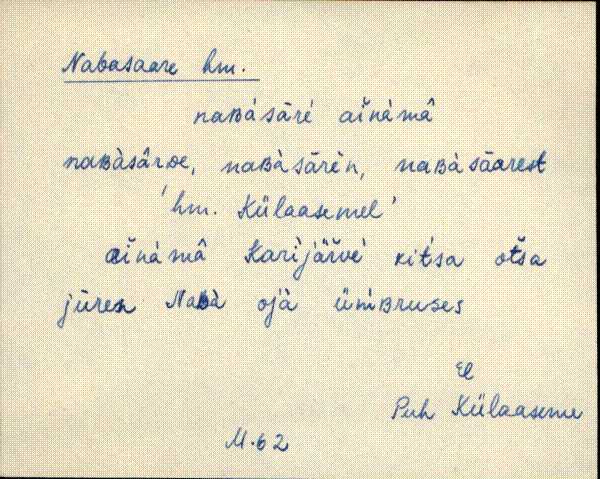 Nabasaare hm.
naʙàsāŕé aĭnàmâ
naʙàsâ̄ʀᴅe, naʙàsārèn, naʙàsāarest
'hm. Külaasemel'
aĭnàmâ Karìjäŕvé kit́sa ot̆sa
jūren Naʙà ojà üḿʙruses
El
Puh Külaaseme
M.62